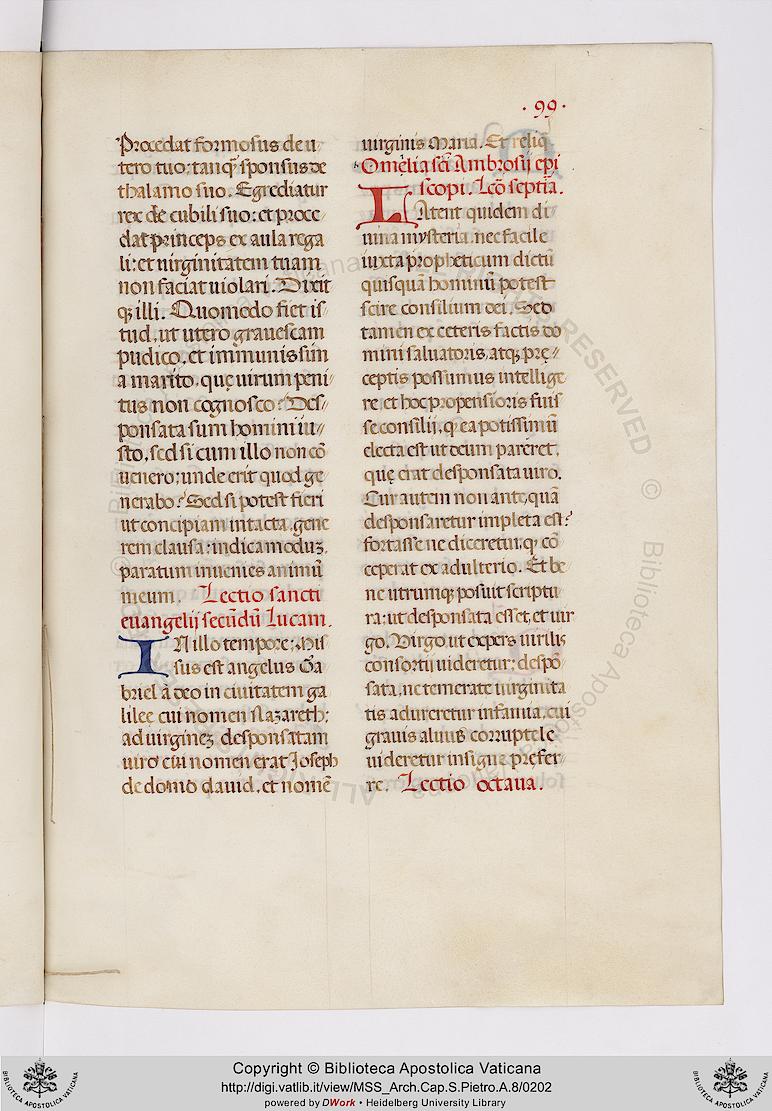 · 99 ·
Procedat formosus de u-
tero tuo: tanq̄ sponsus de
thalamo suo. Egrediatur
rex de cubili suo: et proce-
dat princeps ex aula rega
li: et uirginitatem tuam
non faciat uiolari. Dixit
q; illi. Quomodo fiet is-
tud, ut utero grauescam
pudico, et immunis sim
a marito, quę uirum peni-
tus non cognosco? Des-
ponsata sum homini iu-
sto, sed si cum illo non cō
uenero: unde erit quod ge-
nerabo? Sed si potest fieri
ut concipiam intacta, gene
rem clausa: indica moduȝ,
paratum inuenies animū
meum. Lectio sancti
euangelij secūdū Lucam.
IN illo tempore: Mis
sus est angelus Ga
briel à deo in ciuitatem ga
lileę cui nomen Nazareth:
ad uirgineȝ desponsatam
uiro cui nomen erat Joseph
de domo dauid, et nomē
uirginis Maria. Et reliq̄
Omēlia scī Ambrosij epi
scopi. Lcō septīa.
LAtent quidem di-
uina mysteria, nec facile
iuxta propheticum dictū
quisquā hominū potest
scire consilium dei. Sed
tamen ex ceteris factis do
mini saluatoris, atq; prę-
ceptis possumus intellige
re, et hoc propensioris fuis
se consilij, q̄ ea potissimū
electa est ut deum pareret,
quę erat desponsata uiro.
Cur autem non ante, quā
desponsaretur impleta est?
fortasse ne diceretur, q̄ cō
ceperat ex adulterio. Et be
ne utrumq; posuit scriptu
ra: ut desponsata esset, et uir
go. Virgo ut expers uirilis
consortij uideretur: despō
sata, ne temerate uirginita
tis adureretur infamia, cui
grauis aluus corruptele
uideretur insigne pręfer-
re. Lectio octaua.
Copyright © Biblioteca Apostolica Vaticana
http://digi.vatlib.it/view/MSS_Arch.Cap.S.Pietro.A.8/0202
powered by DWork • Heidelberg University Library
BIBLIOTECA APOSTOLICA VATICANA
BIBLIOTECA APOSTOLICA VATICANA